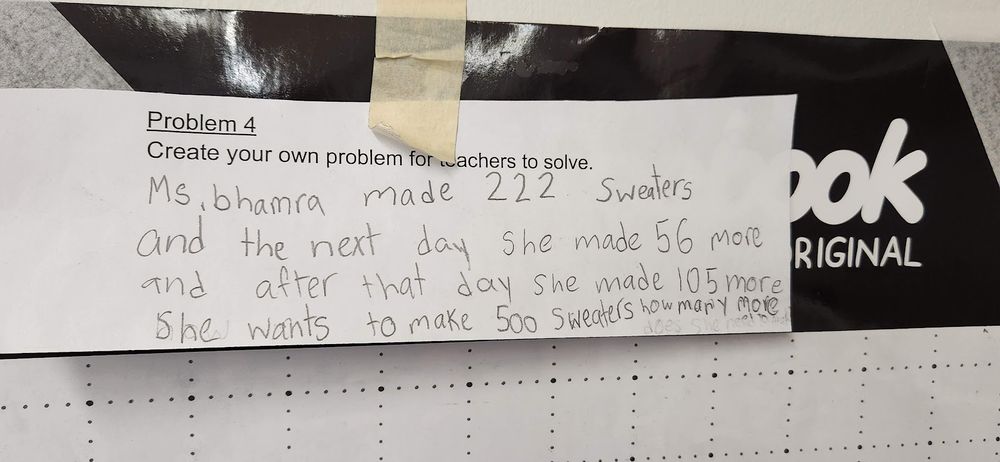 Problem 4
Create your own problem for teachers to solve.
Ms. bhamra made 222 Sweaters
and the next day she made 56 more
and after that day she made 105 more
She wants to make 500 Sweaters how many more
does she need to
ook
RIGINAL